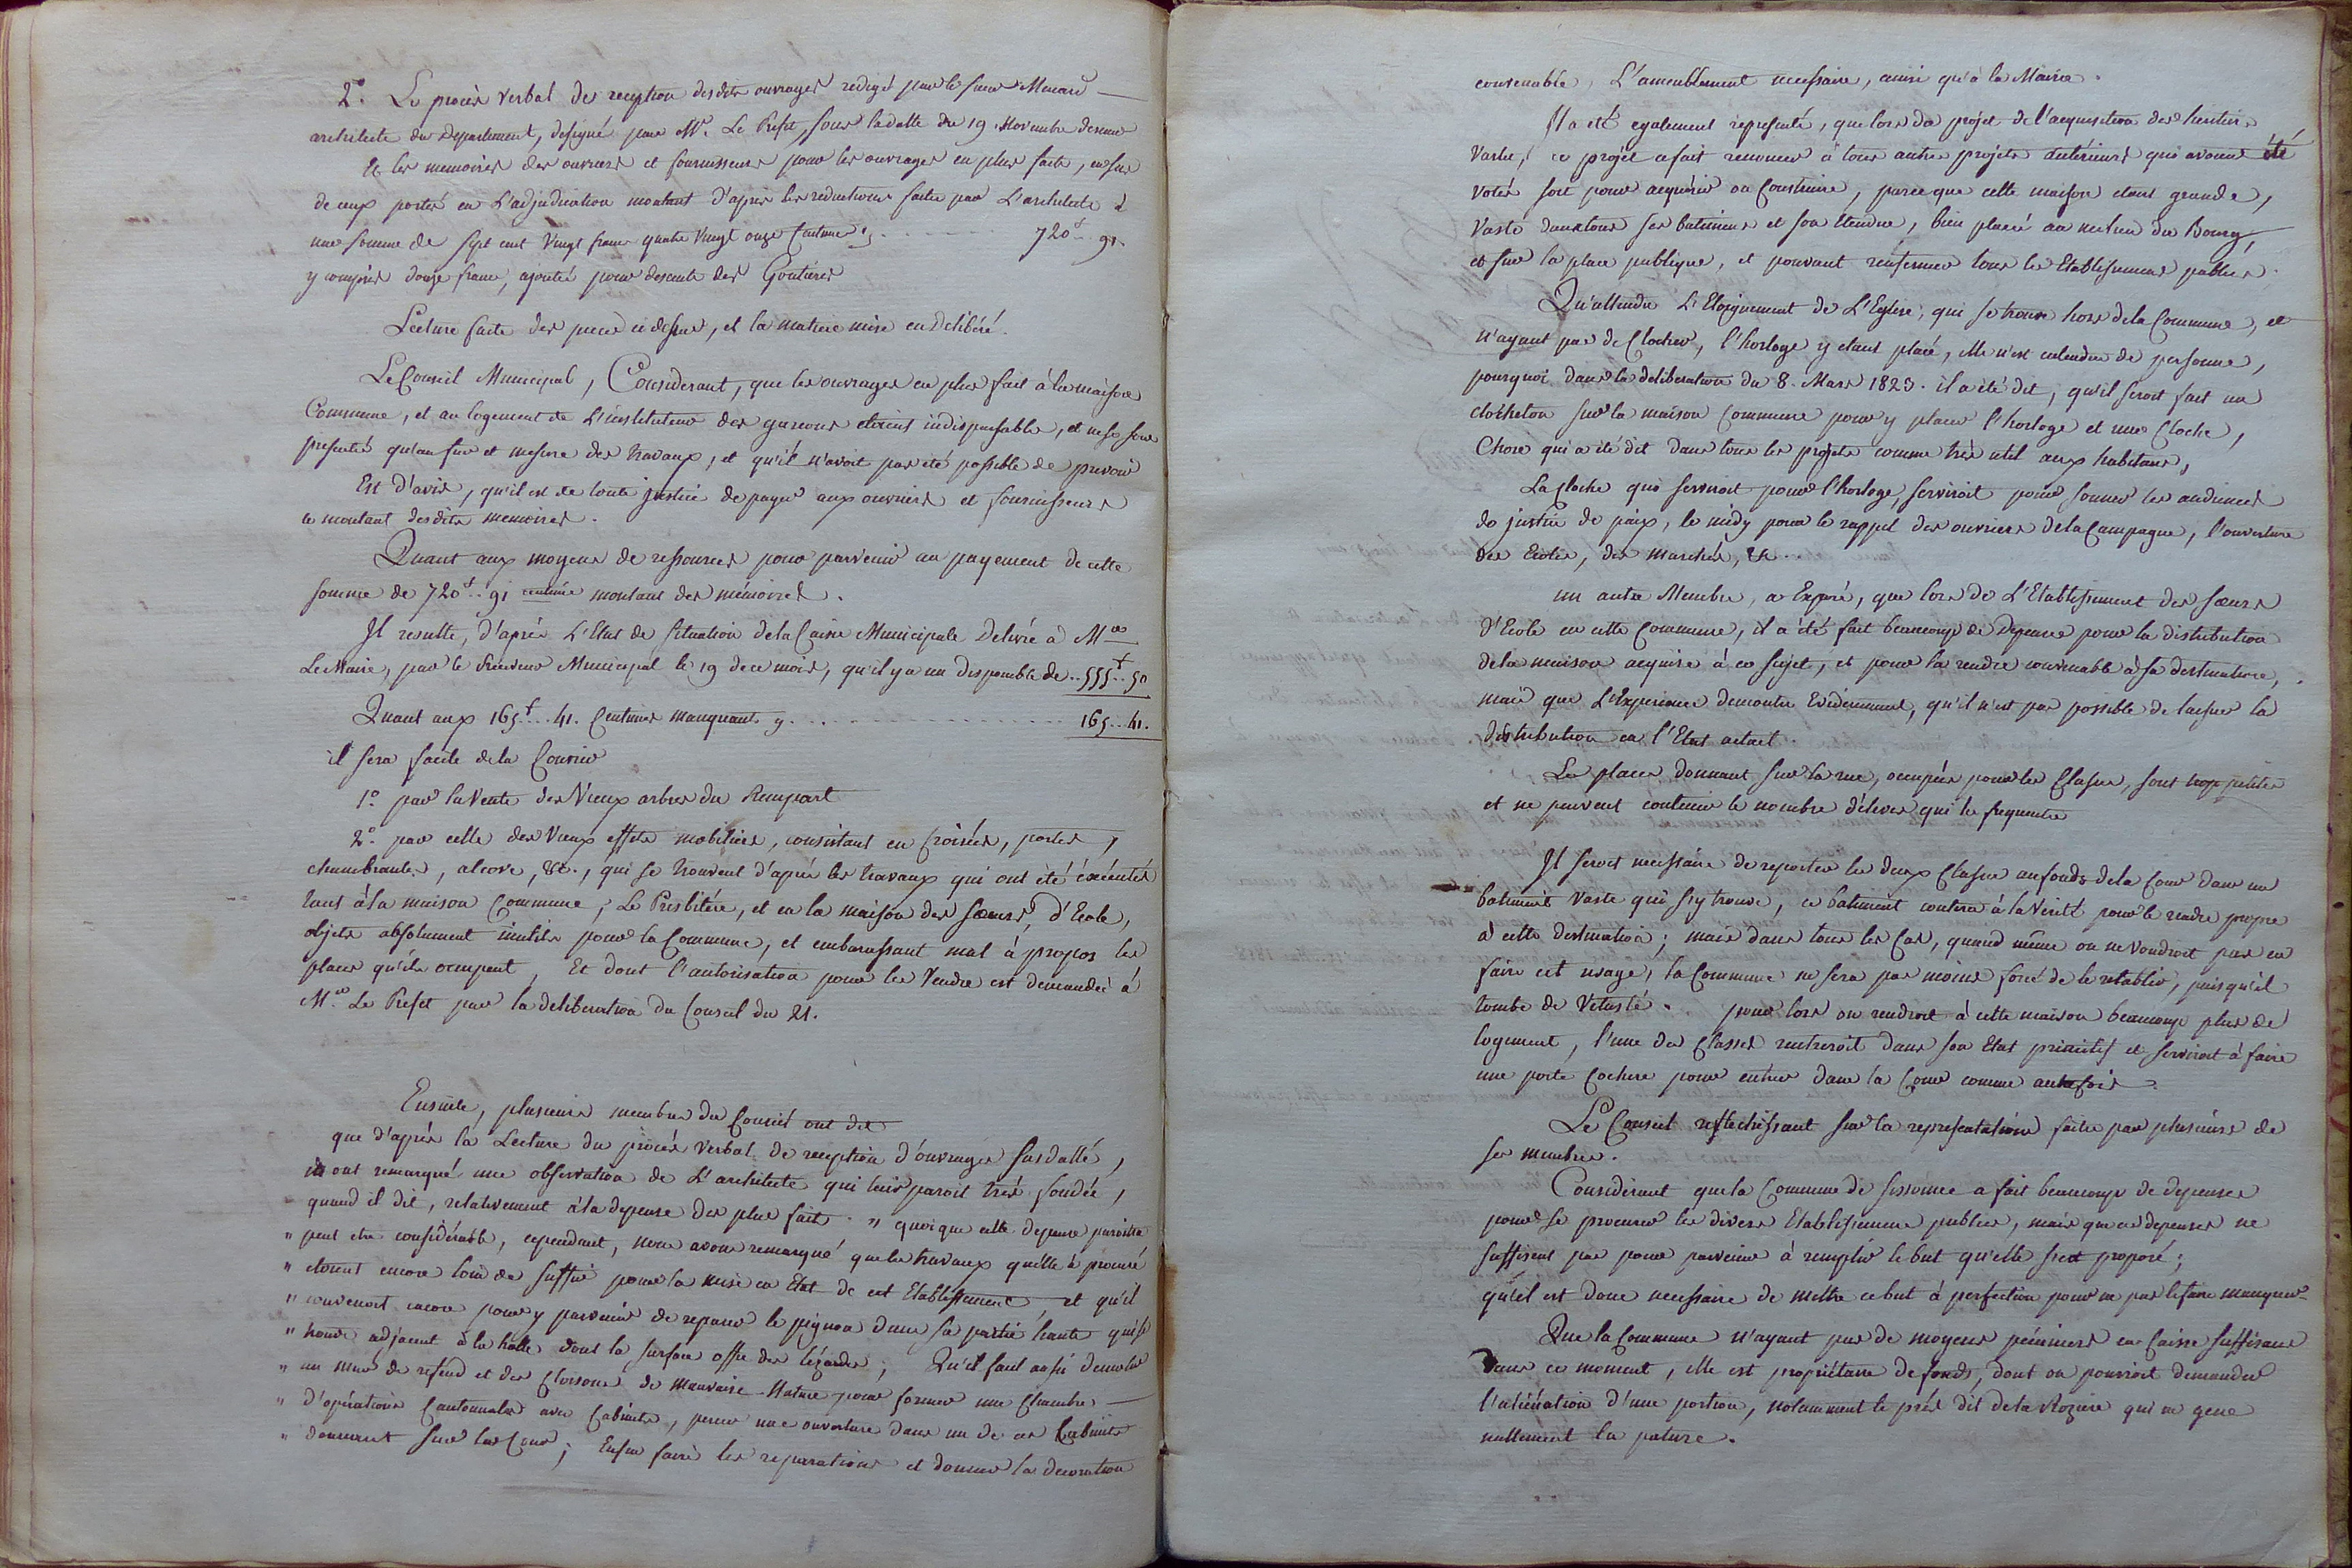 2°. Le procès verbal de reception desdits ouvrages redigé par le sieur Menard
architecte du Departement, designé par Mr. Le Prefet, sous la datte du 19 Novembre dernier
Et les memoires des ouvriers et fournisseurs pour les ouvrages en plus faits, en sus
de ceux portés en L'adjudication montant d'après les reductions faites par L'architecte à
une somme de sept cent vingt francs quatre vingt onze Centimes cy 720f.. 91.
y compris douze francs, ajoutés pour descente des Goutieres
Lecture faite des pieces ci dessus, et la matiere mise en Deliberé.
Le Conseil Municipal, Considerant, que les ouvrages en plus fait à la maison
Commune, et au logement de L'instituteur des garcons etoient indispensables, et ne se sont
presentés qu'au fur et mesure des travaux, et qu'il n'avoit pas été possible de prevoir
Est d'avis, qu'il est de toute justice de payer aux ouvriers et fournisseurs
le montant desdits memoires.
Quant aux moyens de ressources pour parvenir au payement de cette
somme de 720f.. 91 centimes montant des mémoires.
Il resulte, d'après L'Etat de situation de la Caisse Municipale Delivré à Mr
Le Maire, par le Receveur Municipal le 19 de ce mois, qu'il y a un disponible de .. 555f.. 50
Quant aux 165f... 41. Centimes manquants cy 165.. 41.
il sera facile de la Couvrir
1°. par la Vente des Vieux arbres du Rempart
2°. par celle des Vieux effets mobiliers, consistant en Croisées, portes,
chambranles, alcove, &c., qui se trouvent d'après les travaux qui ont été éxécutés
tant à la maison Commune, Le Presbitère, et en la maison des Sœurs d'Ecole,
objets absolument inutils pour la Commune, et embarassant mal à propos les
places qu'ils occupent, Et dont l'autorisation pour les Vendre est demandée à
Mr. Le Prefet par la deliberation du Conseil du 21.
Ensuite, plusieurs membres du Conseil ont dit
que d'après la Lecture du procès verbal de reception d'ouvrages susdatté,
ils ont remarqué une observation de L'architecte qui leur paroit très fondée,
quand il dit, relativement à la depense des plus fait. " quoique cette depense paroisse
" peut etre considérable, cependant, nous avons remarqué que les travaux qu'elle à procuré
" etoient encore loin de suffir pour la mise en Etat de cet Etablissement et qu'il
" convenoit encore pour y parvenir de reparer le pignon dans sa partie haute qui se
" trouve adjacent à la halle dont la surface offre des lézardes; Qu'il faut aussi demolir
" un mur de refend et des Cloisons de Mauvaise Nature pour former une Chambre
" d'opérations Cantonnales avec Cabinets, percer une ouverture dans un de ces Cabinets
" donnant sur la Cour; Enfin faire les reparations et donner la decoration
convenable, L'ameublement necessaire, ainsi qu'à la Mairie.
Il a été egalement representé, que lors du projet de l'acquisition des heritiers
ce projet a fait renoncer à tous autres projets antérieurs qui avoient été
votés soit pour acquérir ou Construire, parceque cette maison etant grande,
Vaste dans tous ses batimens et son etendue, bien placée au milieu du Bourg,
et sur la place publique, et pouvant renfermer tous les Etablissemens publics.
Qu'attendu L'Eloignement de L'Eglise, qui se trouve hors de la Commune, et
n'ayant pas de Clocher, l'horloge y etant placé, elle n'est entendue de personne,
pourquoi dans la deliberation du 8. Mars 1823. il a été dit, qu'il seroit fait un
clocheton sur la maison Commune pour y placer l'horloge et une Cloche,
Chose qui a été dit dans tous les projets comme très util aux habitans,
La Cloche qui serviroit pour l'horloge, serviroit pour sonner les audiences
de justice de paix, le midy pour le rappel des ouvriers de la Campagne, l'ouverture
des Ecoles, des marchés, &c.
un autre Membre, a Exposé, que lors de L'Etablissement des Sœurs
d'Ecole en cette Commune, il a été fait beaucoup de Depenses pour la distribution
de la maison acquise à ce sujet, et pour la rendre convenable à sa destination,
mais que L'Experience demontre Evidemment, qu'il n'est pas possible de laisser la
distribution en l'Etat actuel.
Les places donnant sur la rue, occupées pour les Classes, sont trop petites
et ne peuvent contenir le nombre d'éleves qui les frequente
Il seroit necessaire de reporter les deux Classes au fonds de la Cour dans un
batiment vaste qui s'y trouve, ce batiment coutera à la Vérité pour le rendre propre
à cette destination; mais dans tous les Cas, quand même on ne voudroit pas en
faire cet usage, la Commune ne sera pas moins forcé de le retablir, puisqu'il
tombe de Vetusté. pour lors on rendroit à cette maison beaucoup plus de
logement, l'une des Classes rentreroit dans son Etat primitif et serviroit à faire
une porte Cochere pour entrer dans la Cour comme autrefois.
Le Conseil reflechissant sur la representations faite par plusieurs de
ses membres.
Considérant que la Commune de Sissonne a fait beaucoup de depenses
pour se procurer les divers Etablissemens publics, mais que ces depenses ne
suffisent pas pour parvenir à remplir le but qu'elle s'est proposé;
qu'il est donc necessaire de mettre ce but à perfection pour ne pas le faire manquer.
Que la Commune n'ayant pas de moyens pécuniers en Caisse suffisans
dans ce moment, elle est propriétaire de fonds, dont on pourroit demander
l'aliénation d'une portion, notamment le prés dit de la Roziere qui ne gene
nullement la pature.